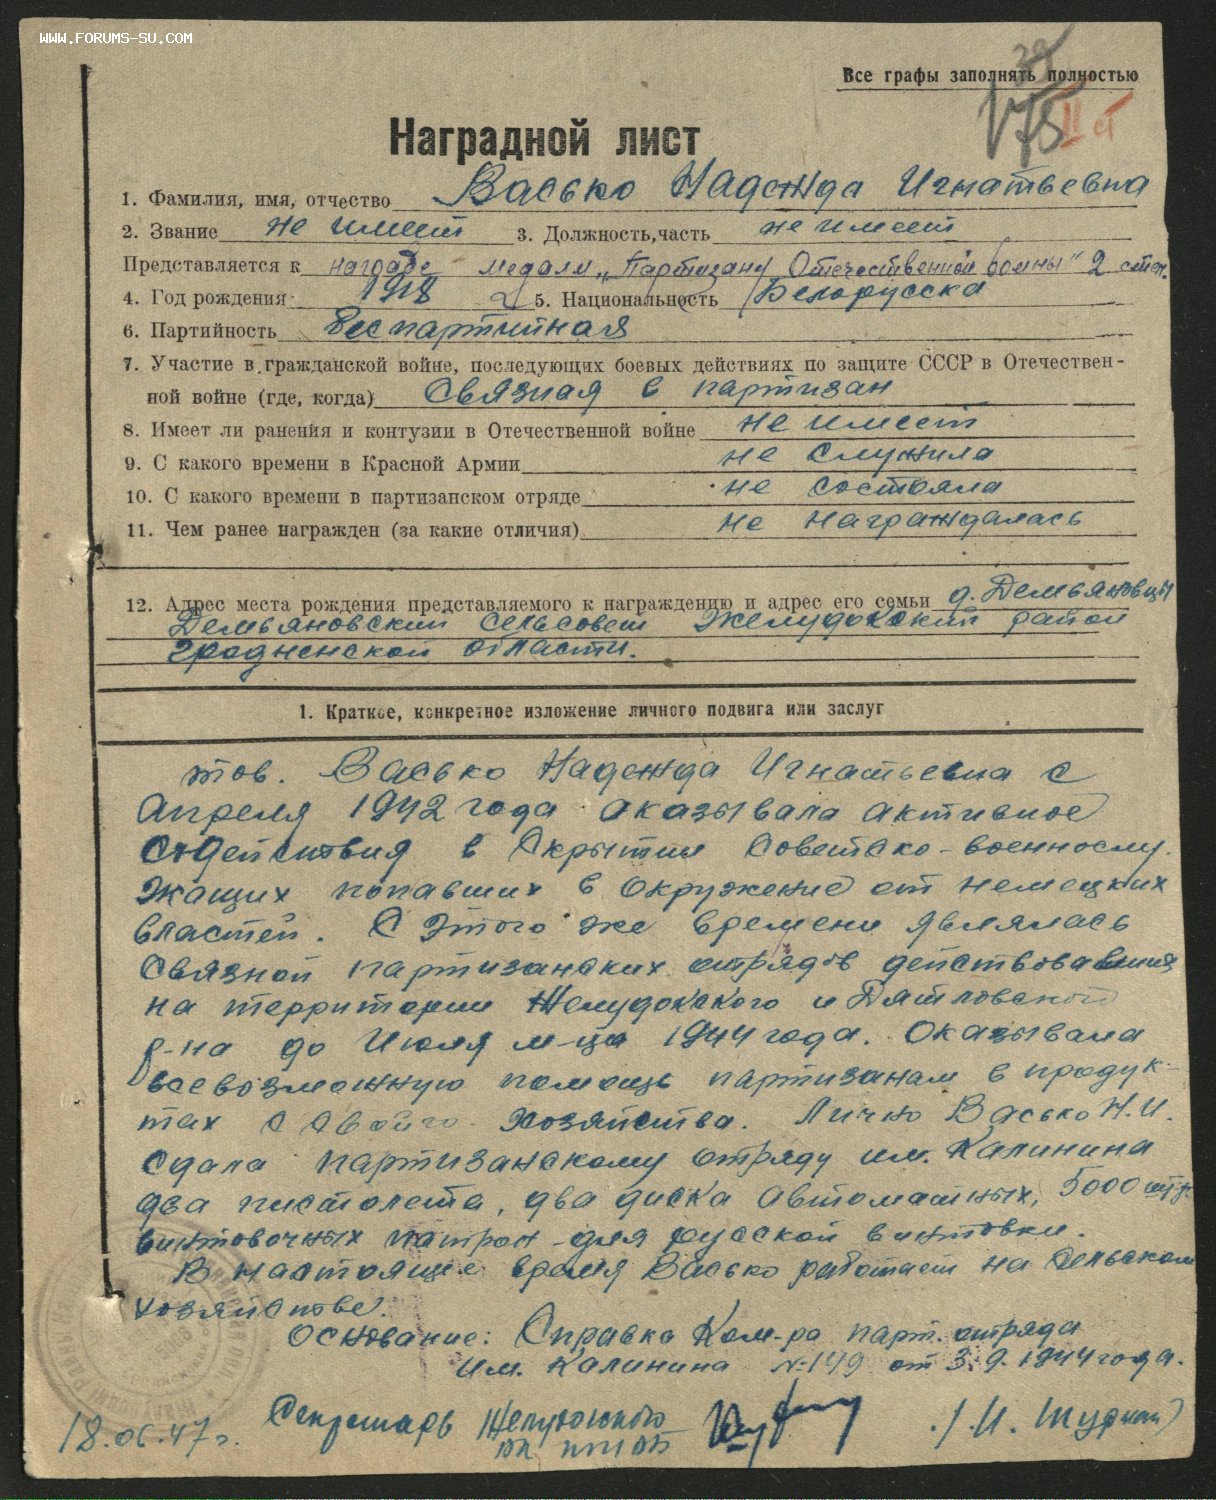 WWW.FORUMS-SU.COM
39
Все графы заполнять полностью
178
II ст
Наградной лист
1. Фамилия, имя, отчество Васько Надежда Игнатьевна
2. Звание не имеет 3. Должность, часть не имеет
Представляется к награде медали „Партизану Отечественной войны" 2 степ.
4. Год рождения 1918 5. Национальность Белорусска
6. Партийность беспартийная
7. Участие в гражданской войне, последующих боевых действиях по защите СССР в Отечествен-
ной войне (где, когда) Связная в партизан
8. Имеет ли ранения и контузии в Отечественной войне не имеет
9. С какого времени в Красной Армии не служила
10. С какого времени в партизанском отряде не состояла
11. Чем ранее награжден (за какие отличия) не награждалась
12. Адрес места рождения представляемого к награждению и адрес его семьи д. Демьяновцы
Демьяновский сельсовет Желудокский район
Гродненской области.
1. Краткое, конкретное изложение личного подвига или заслуг
тов. Васько Надежда Игнатьевна с
Апреля 1942 года аказывала активное
содействия в скрытии Советско-военнослу-
жащих попавших в окружение от немецких
властей. С этого же времени являлась
связной партизанских отрядов действовавших
на территории Желудокского и Дятловского
р-на до Июля м-ца 1944 года. Оказывала
всевозможную помощь партизанам в продук-
тах с своего хозяйства. Лично Васько Н.И.
сдала партизанскому отряду им. Калинина
два пистолета, два диска автоматных, 5000 штук
винтовочных патрон для русской винтовки.
В настоящие время Васько работает на сельском
хозяйстве.
Основание: Справка Ком-ра парт. отряда
им. Калинина №149 от 3.9.1944 года.
18.06.47г. Секретарь Желудокского